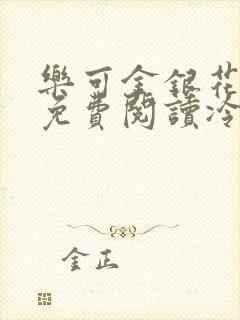 樂可金銀花
免費閱讀冷
金正